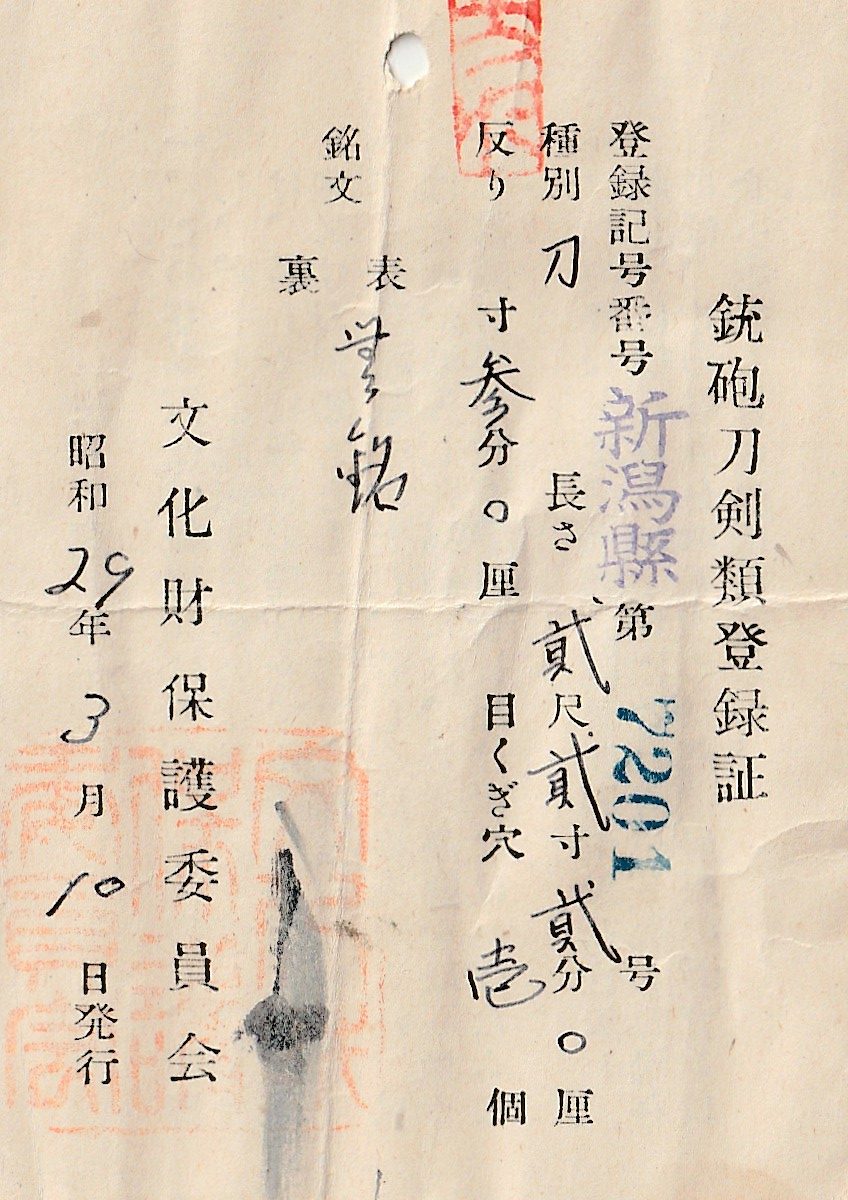 銃砲刀剣類登録証
登録記号番号 新潟縣 第 7201 号
種別 刀 長さ 貳尺 貳寸 貳分 〇厘
反り 寸 参分 〇厘 目くぎ穴 壱 個
銘文
表 無銘
裏
文化財保護委員会
昭和29年3月10日発行